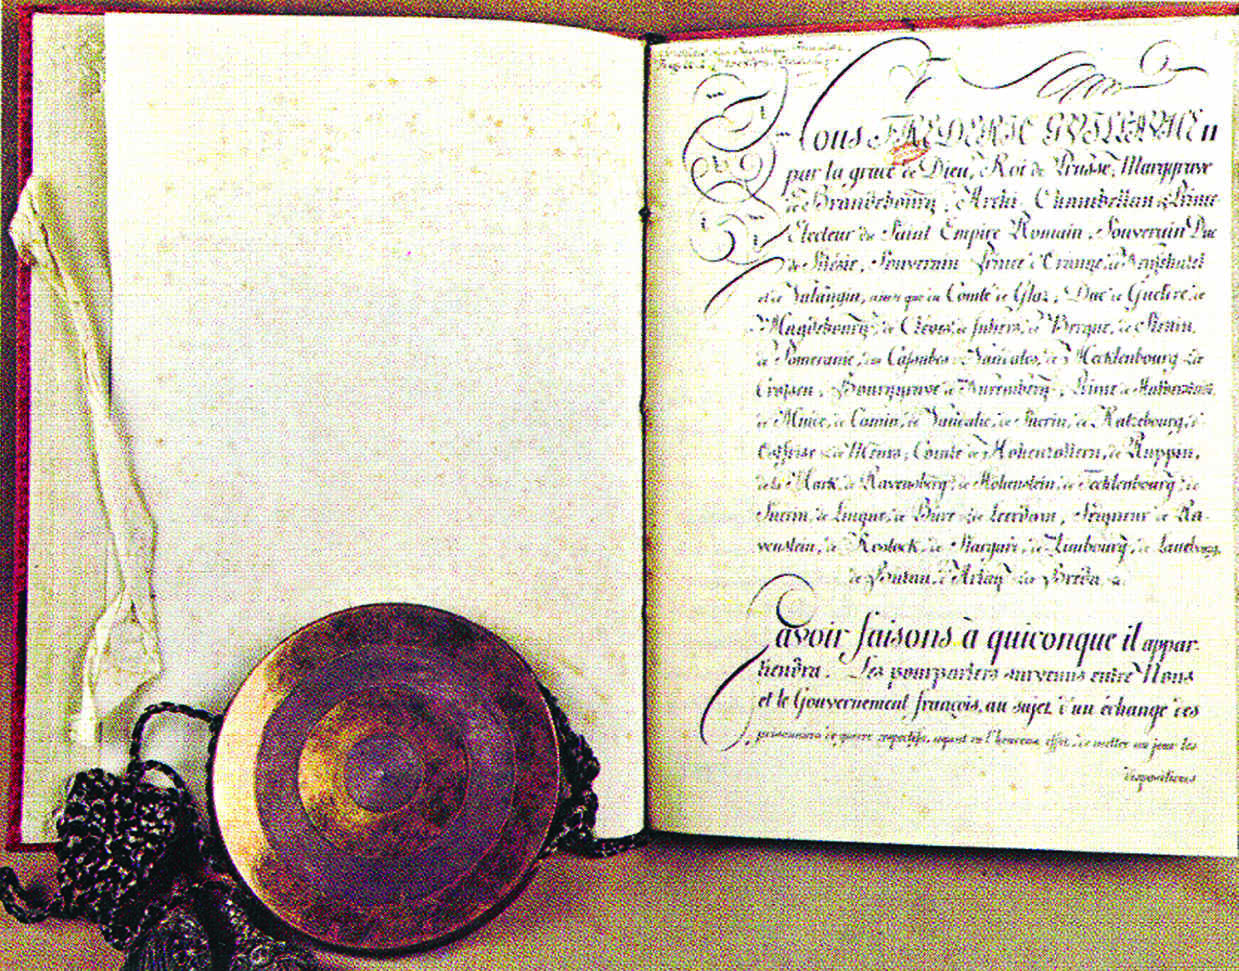 Nous FREDERIC GUILLAUME II
par la grace de Dieu, Roi de Prusse, Marggrave
de Brandebourg, Archi-Chambellan & Prince
Electeur du Saint Empire Romain, Souverain Duc
de Silésie, Souverain Prince d'Orange, de Neufchatel
et de Valangin, ainsi que du Comté de Glaz, Duc de Gueldre, de
Magdebourg, de Clèves, de Juliers, de Bergue, de Stettin,
de Pomeranie, des Cassubes & Vandales, de Mecklenbourg & de
Crossen, Bourggrave de Nuremberg, Prince de Halberstadt,
de Minde, de Camin, de Vandalie, de Suerin, de Ratzebourg, d'
Ostfrise & de Meurs, Comte de Hohenzollern, de Ruppin,
de la Mark, de Ravensberg, de Hohenstein, de Tecklenbourg, de
Suerin, de Lingue, de Büre & de Leerdam, Seigneur de Ra-
venstein, de Rostock, de Stargard, de Limbourg, de Lauebourg,
de Butau, d'Arlay & de Breda &c.
Savoir faisons à quiconque il appar-
tiendra. Les pourparlers survenus entre Nous
et le Gouvernement françois, au sujet d'un échange des
prisonniers de guerre respectifs, ayant eu l'heureux effet, de mettre au jour les
dispositions